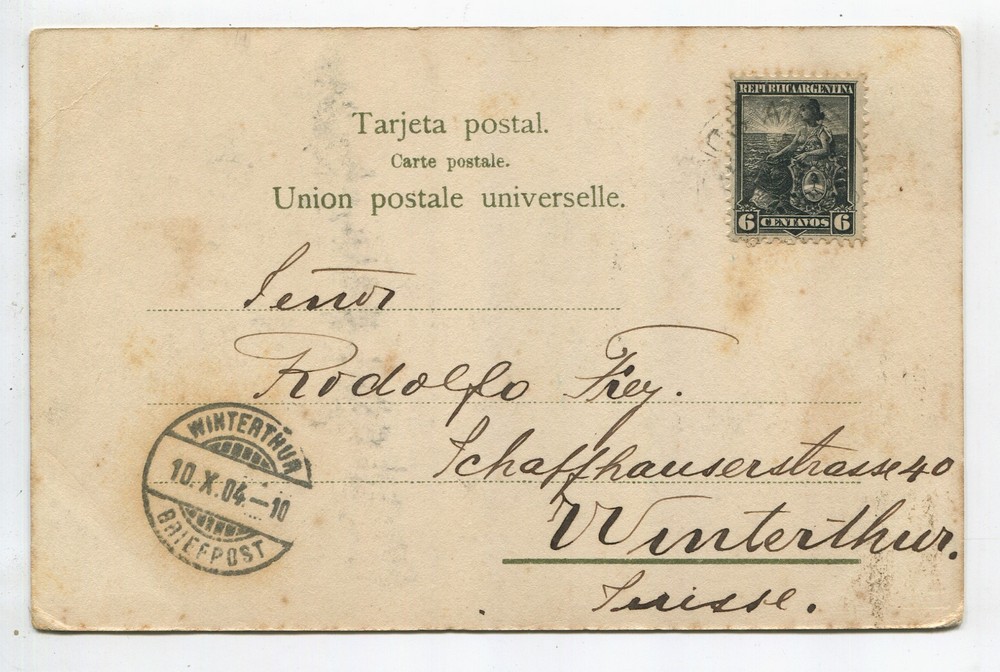 Tarjeta postal.
Carte postale.
Union postale universelle.
REPUBLICA ARGENTINA
6 CENTAVOS 6
Señor
Rodolfo Frey.
Schaffhauserstrasse 40
Winterthur.
Suisse.
WINTERTHUR
10.X.04.-10
BRIEFPOST